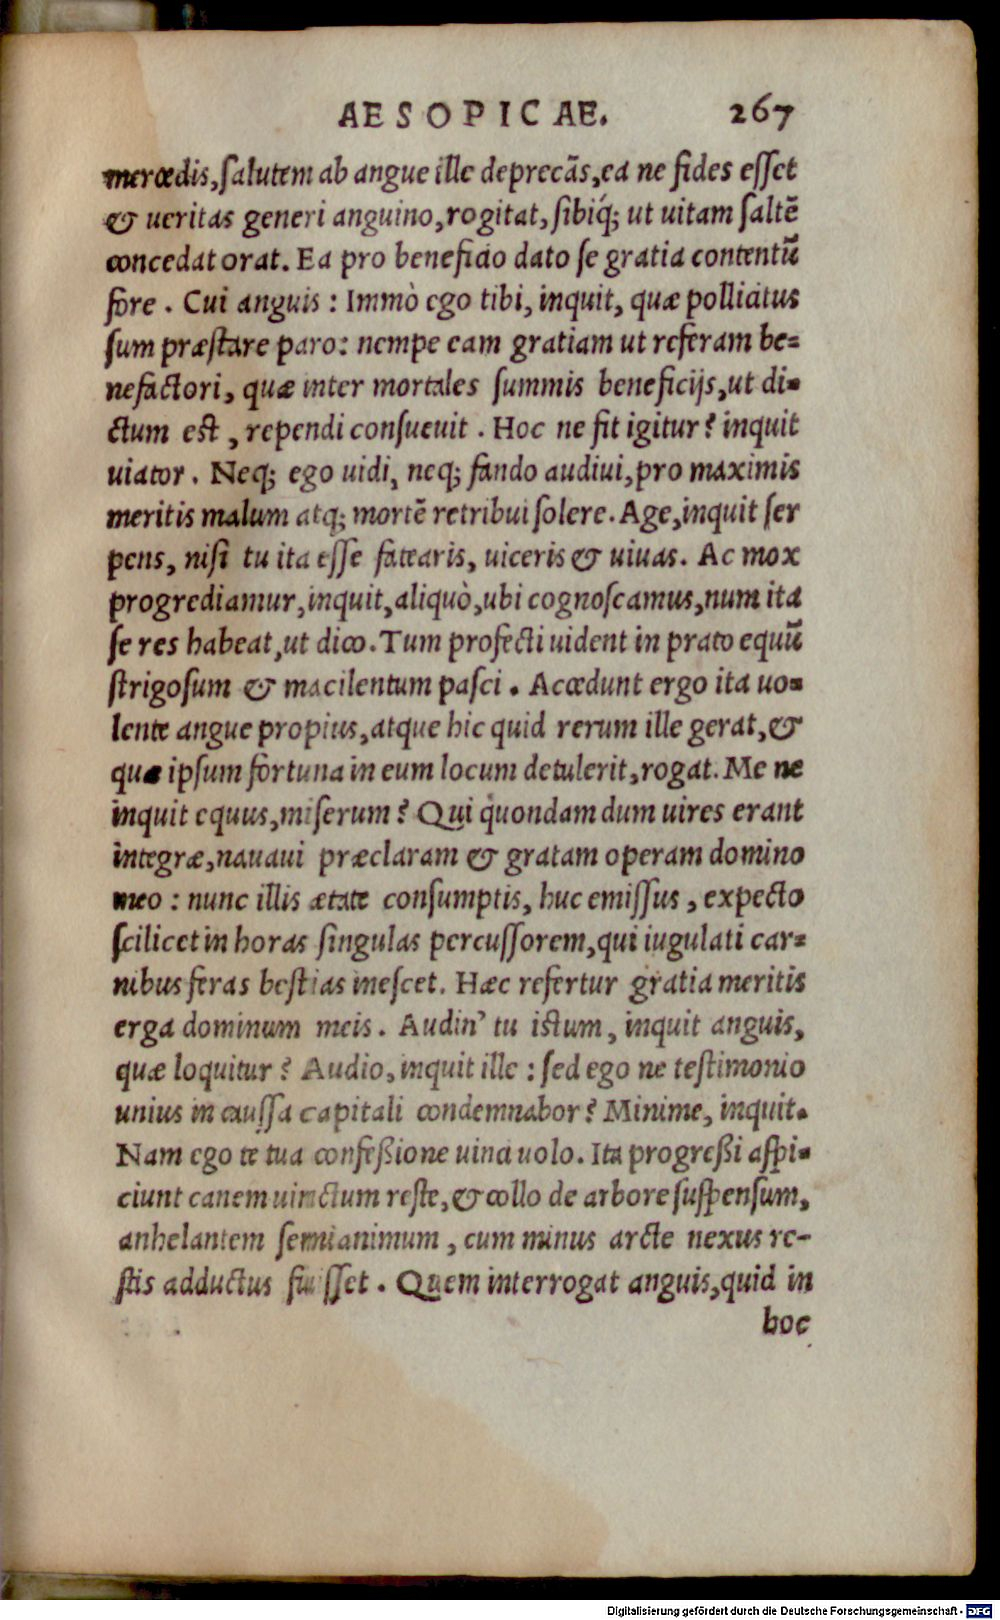 AESOPICAE. 267
mercedis, salutem ab angue ille deprecãs, ea ne fides esset
& ueritas generi anguino, rogitat, sibiq́; ut uitam saltẽ
concedat orat. Ea pro beneficio dato se gratia contentũ
fore. Cui anguis: Immò ego tibi, inquit, quæ pollicitus
sum præstare paro: nempe eam gratiam ut referam be=
nefactori, quæ inter mortales summis beneficijs, ut di=
ctum est, rependi consueuit. Hoc ne fit igitur? inquit
uiator. Neq; ego uidi, neq; fando audiui, pro maximis
meritis malum atq; mortẽ retribui solere. Age, inquit ser
pens, nisi tu ita esse fatearis, uiceris & uiuas. Ac mox
progrediamur, inquit, aliquò, ubi cognoscamus, num ita
se res habeat, ut dico. Tum profecti uident in prato equũ
strigosum & macilentum pasci. Accedunt ergo ita uo=
lente angue propius, atque hic quid rerum ille gerat, &
quæ ipsum fortuna in eum locum detulerit, rogat. Me ne
inquit equus, miserum? Qui quondam dum uires erant
integræ, nauaui præclaram & gratam operam domino
meo: nunc illis ætate consumptis, huc emissus, expecto
scilicet in horas singulas percussorem, qui iugulati car=
nibus feras bestias inescet. Hæc refertur gratia meritis
erga dominum meis. Audin' tu istum, inquit anguis,
quæ loquitur? Audio, inquit ille: sed ego ne testimonio
unius in caussa capitali condemnabor? Minime, inquit.
Nam ego te tua confeßione uinci uolo. Ita progreßi aspi=
ciunt canem uinctum reste, & collo de arbore suspensum,
anhelantem semianimum, cum minus arcte nexus re-
stis adductus fuisset. Quem interrogat anguis, quid in
hoc
Digitalisierung gefördert durch die Deutsche Forschungsgemeinschaft - DFG